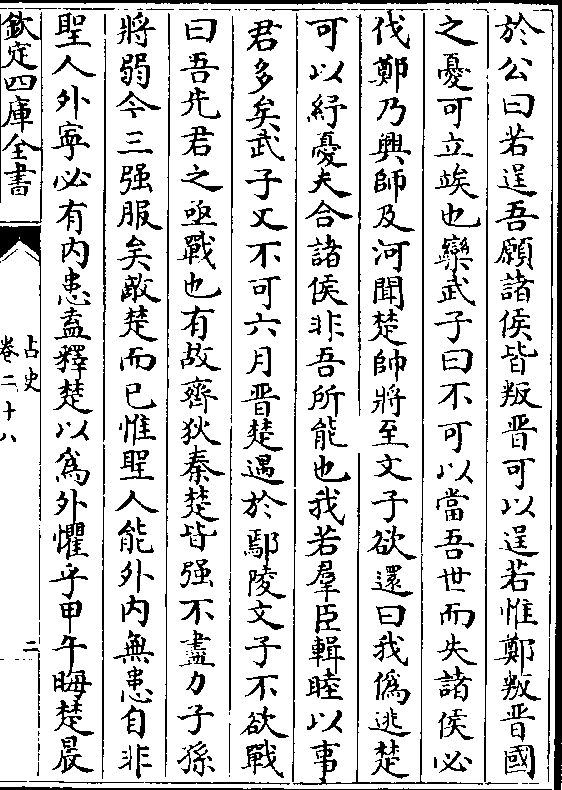 於公曰若逞吾願諸侯皆叛晉可以逞若惟鄭叛晉國
之憂可立竢也欒武子曰不可以當吾世而失諸侯必
伐鄭乃興師及河聞楚師將至文子欲還曰我偽逃楚
可以紓憂夫合諸侯非吾所能也我若羣臣輯睦以事
君多矣武子又不可六月晉楚遇於鄢陵文子不欲戰
曰吾先君之亟戰也有故齊狄秦楚皆强不盡力子孫
將弱今三强服矣敵楚而已惟聖人能外内無患自非
聖人外寧必有内患盍釋楚以為外懼乎甲午晦楚晨
欽定四庫全書
占史
卷二十八
二